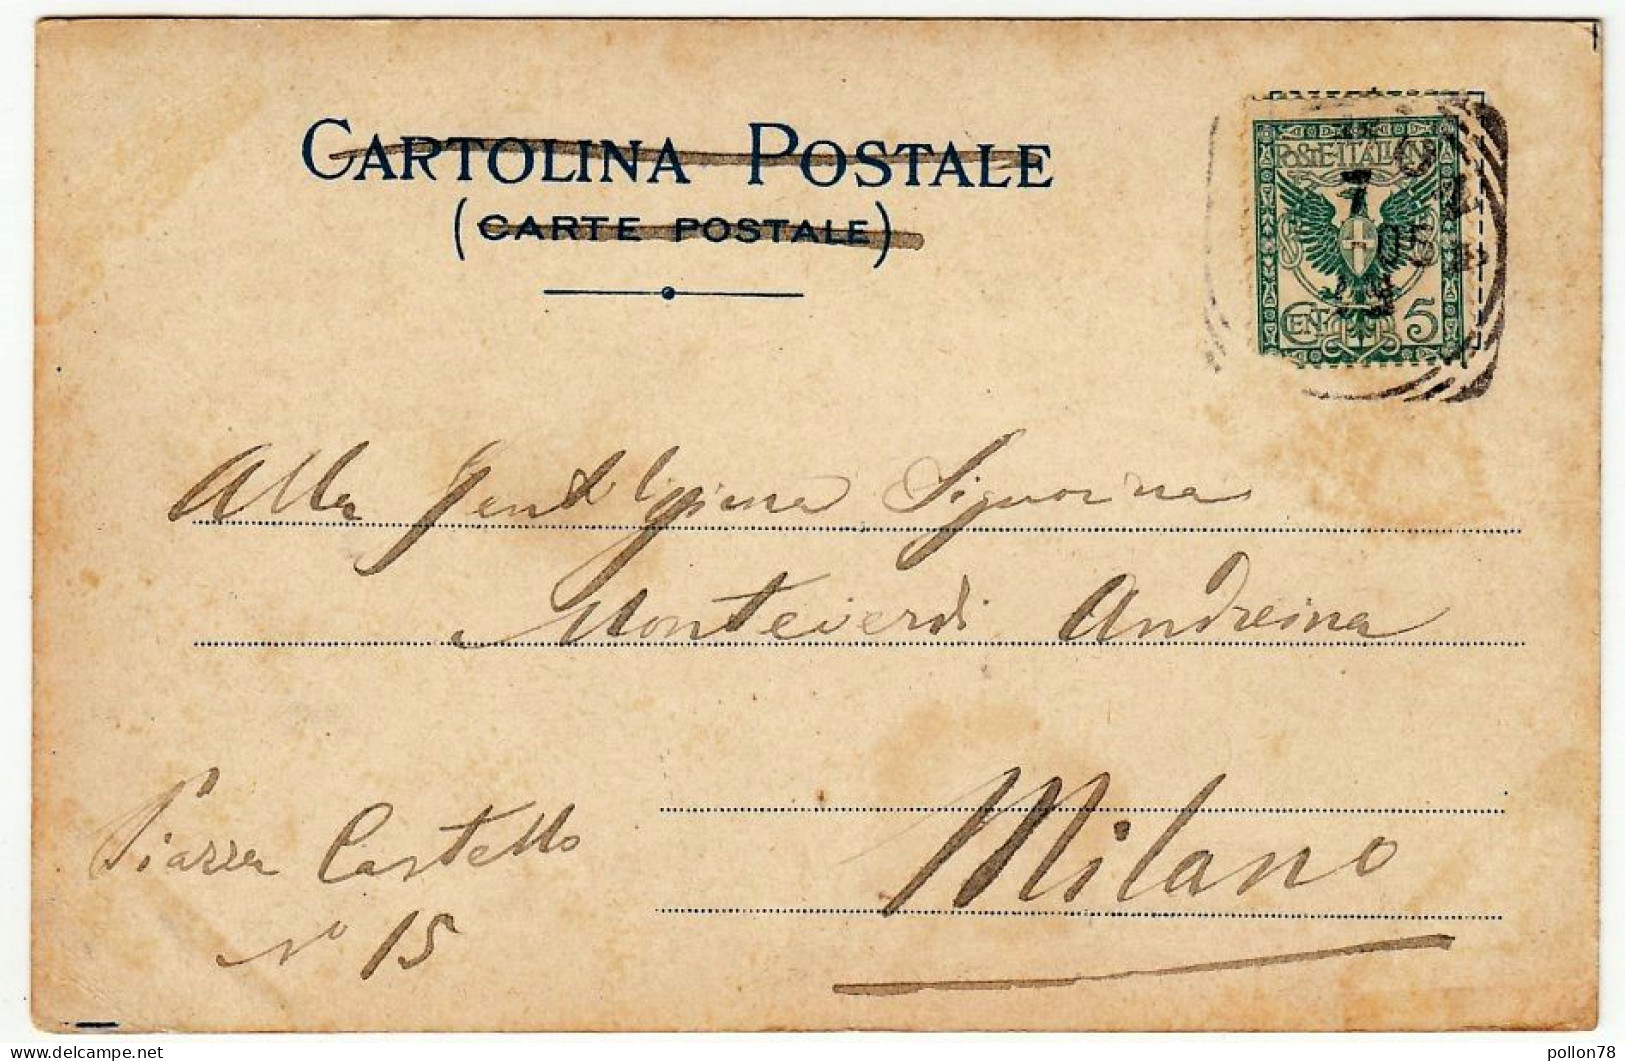 CARTOLINA POSTALE
(CARTE POSTALE)
POSTE ITALIANE
7
05
CENT. 5
Alla Gentilissima Signorina
Monteverdi Andreina
Milano
Piazza Castello
No 15
pollon78